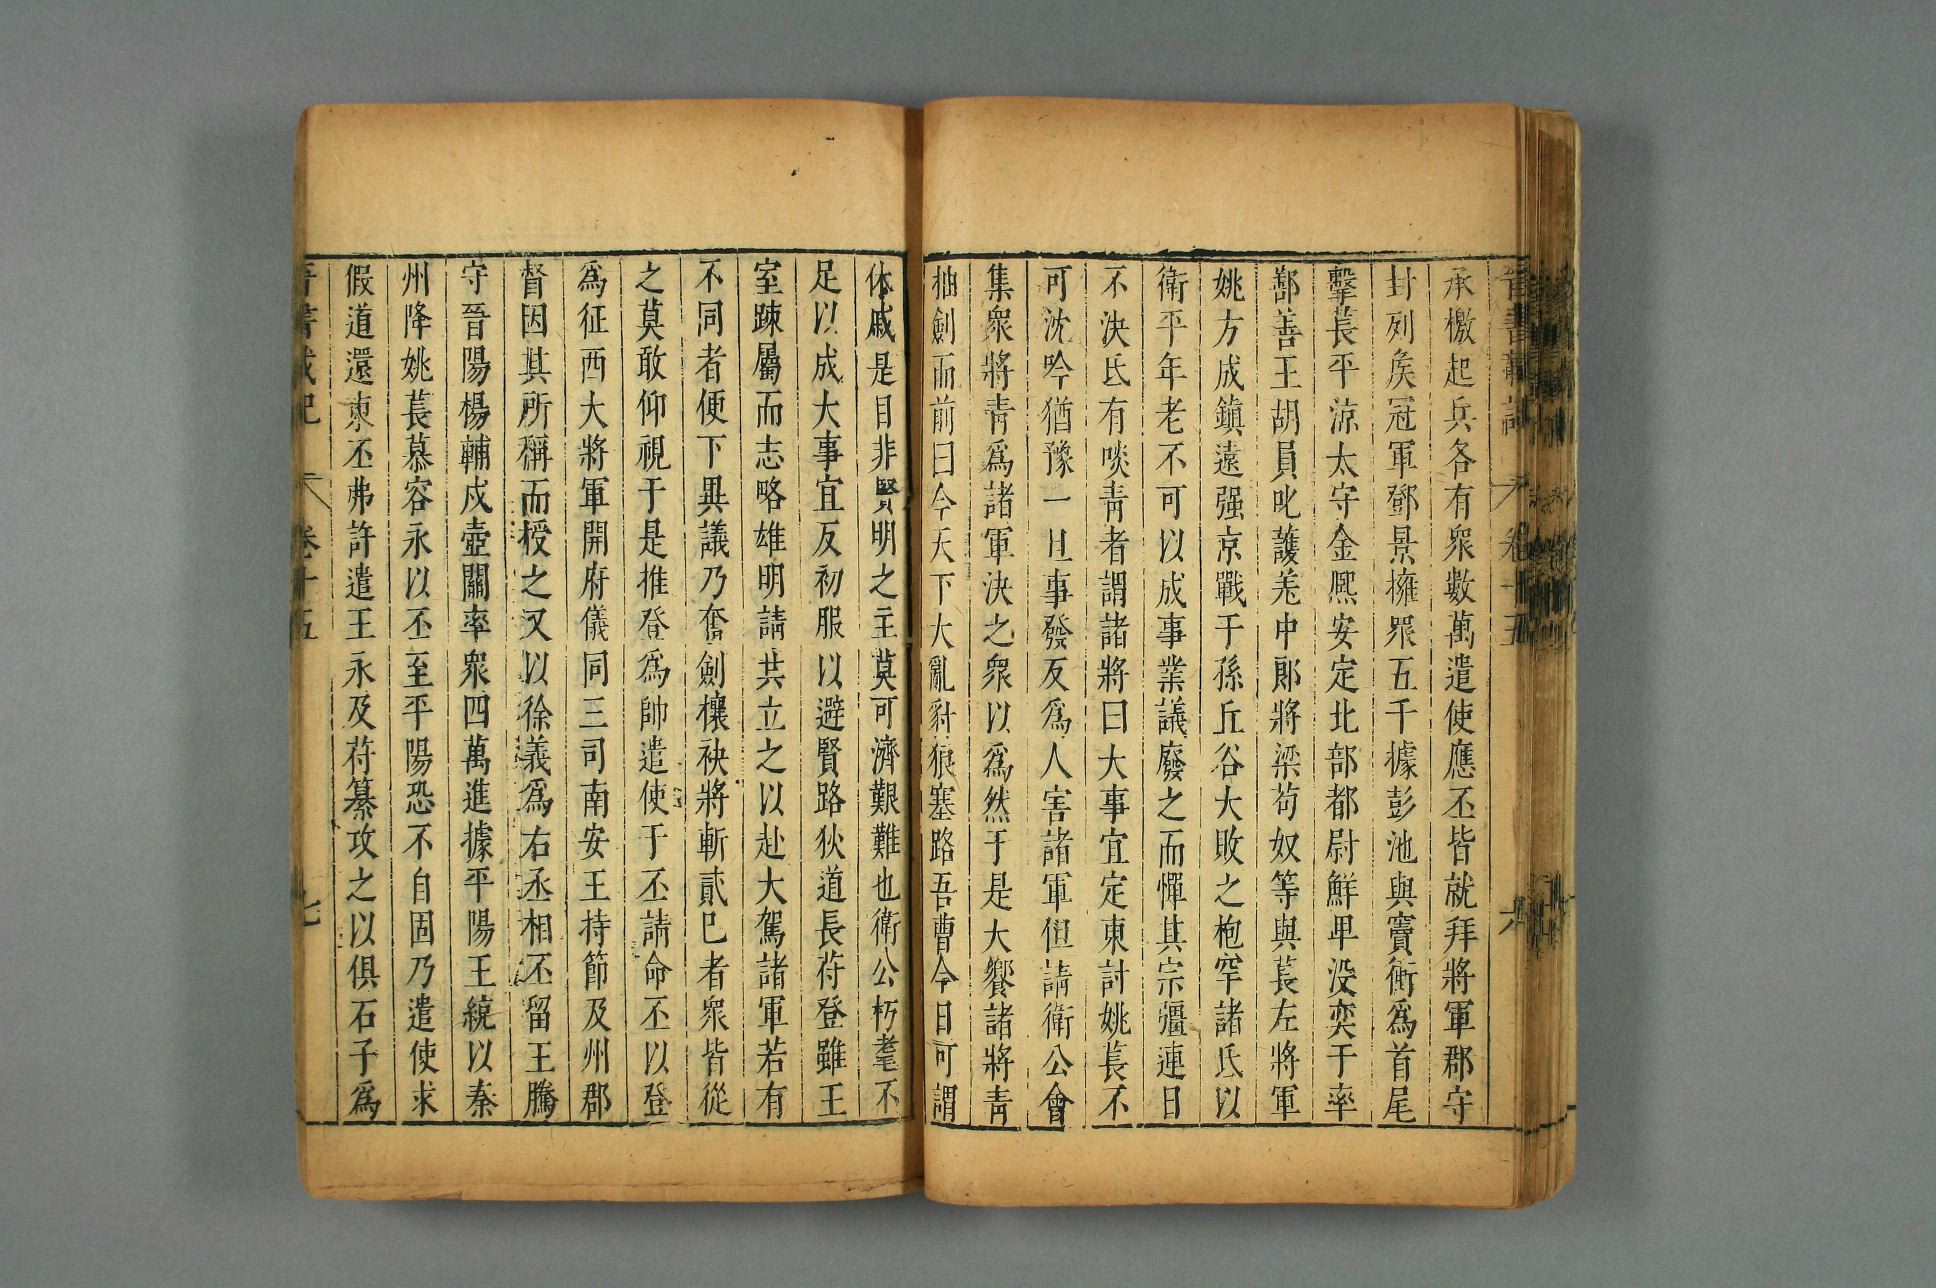 晉書載記 卷十五 六
承檄起兵各有衆數萬遣使應丕皆就拜將軍郡守
封列矦冠軍鄧景擁眾五千據彭池與竇衝爲首尾
擊萇平涼太守金熙安定北部都尉鮮卑没奕于率
鄯善王胡員叱護羌中郞將梁苟奴等與萇左將軍
姚方成鎮遠强京戰于孫丘谷大敗之枹罕諸氐以
衛平年老不可以成事業議廢之而憚其宗彊連日
不決氐有啖青者謂諸將曰大事宜定東討姚萇不
可沈吟猶豫一旦事發反爲人害諸軍但請衛公會
集衆將青爲諸軍決之衆以爲然于是大饗諸將青
抽劍而前曰今天下大亂豺狼塞路吾曹今日可謂
休戚是目非賢明之主莫可濟艱難也衛公朽耄不
足以成大事宜反初服以避賢路狄道長苻登雖王
室踈屬而志略雄明請共立之以赴大駕諸軍若有
不同者便下異議乃奮劍攘袂將斬貳已者衆皆從
之莫敢仰視于是推登爲帥遣使于丕請命丕以登
爲征西大將軍開府儀同三司南安王持節及州郡
督因其所稱而授之又以徐義爲右丞相丕留王騰
守晉陽楊輔戍壺關率衆四萬進據平陽王統以秦
州降姚萇慕容永以丕至平陽恐不自固乃遣使求
假道還東丕弗許遣王永及苻纂攻之以俱石子爲
晉書載記 卷十五 七